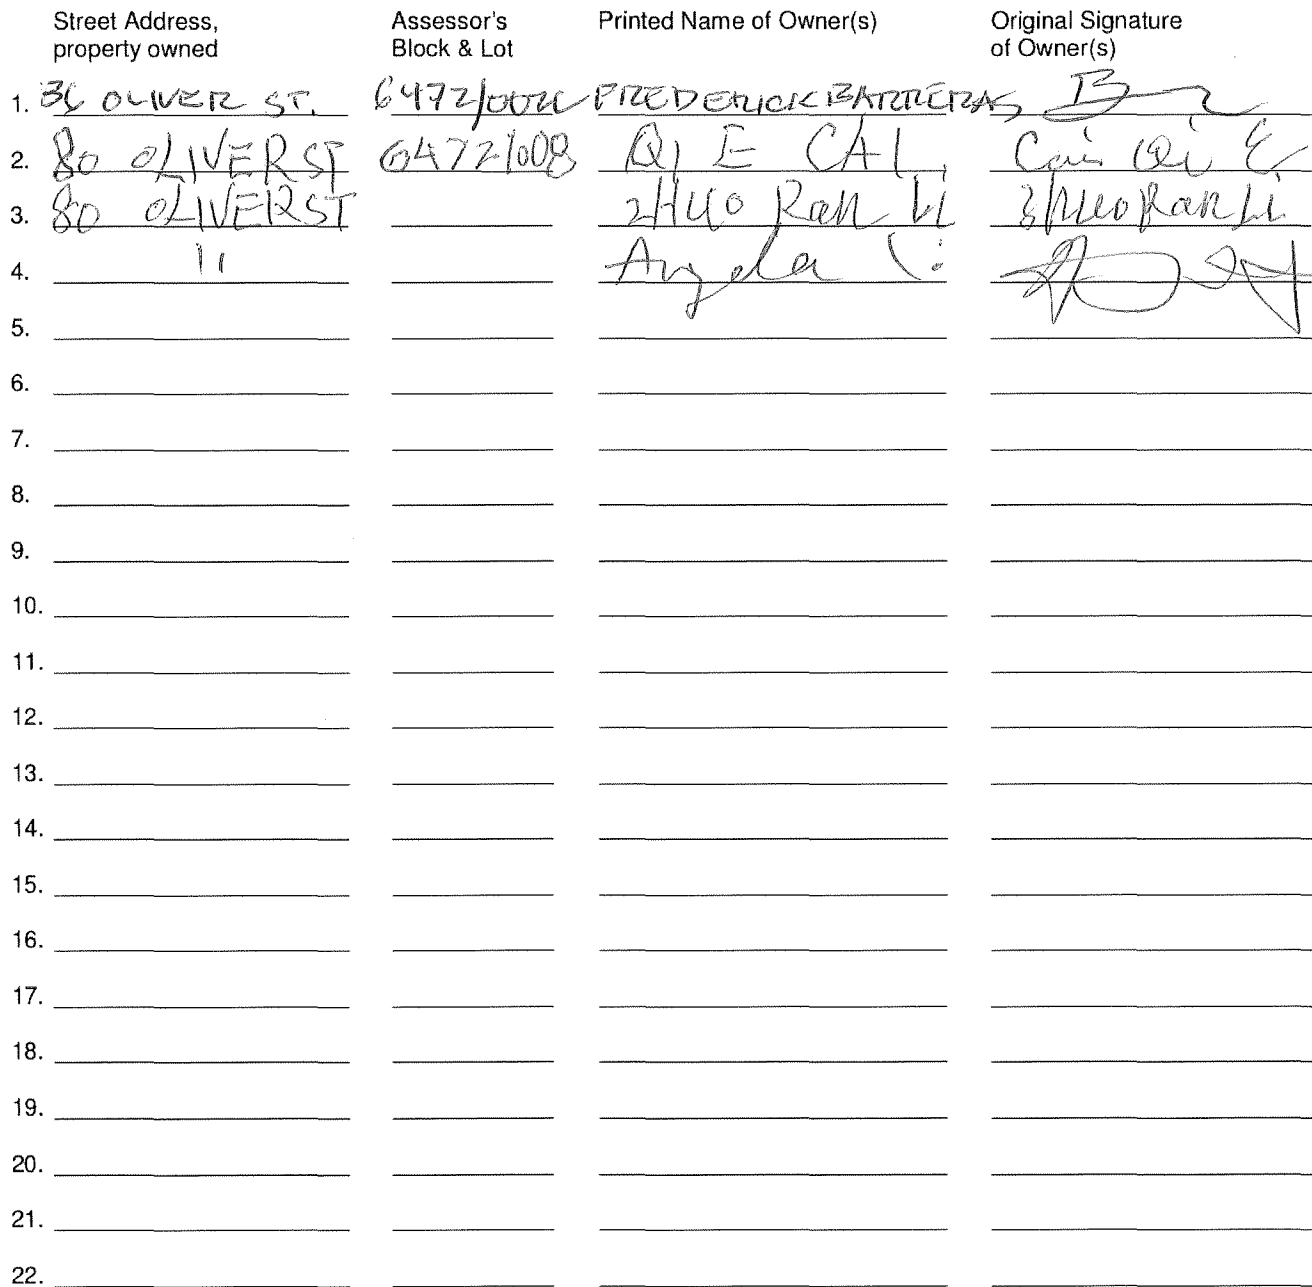 Street Address, property owned Assessor's Block & Lot Printed Name of Owner(s) Original Signature of Owner(s)
1. 36 OLIVER ST. 6472/ FREDERICK BARRERAS
2. 80 OLIVER ST 6472/008 QI E CAI Cai Qi E
3. 80 OLIVER ST ZHUO Ran Li Zhuo Ran Li
4. " Angela Li
5.
6.
7.
8.
9.
10.
11.
12.
13.
14.
15.
16.
17.
18.
19.
20.
21.
22.